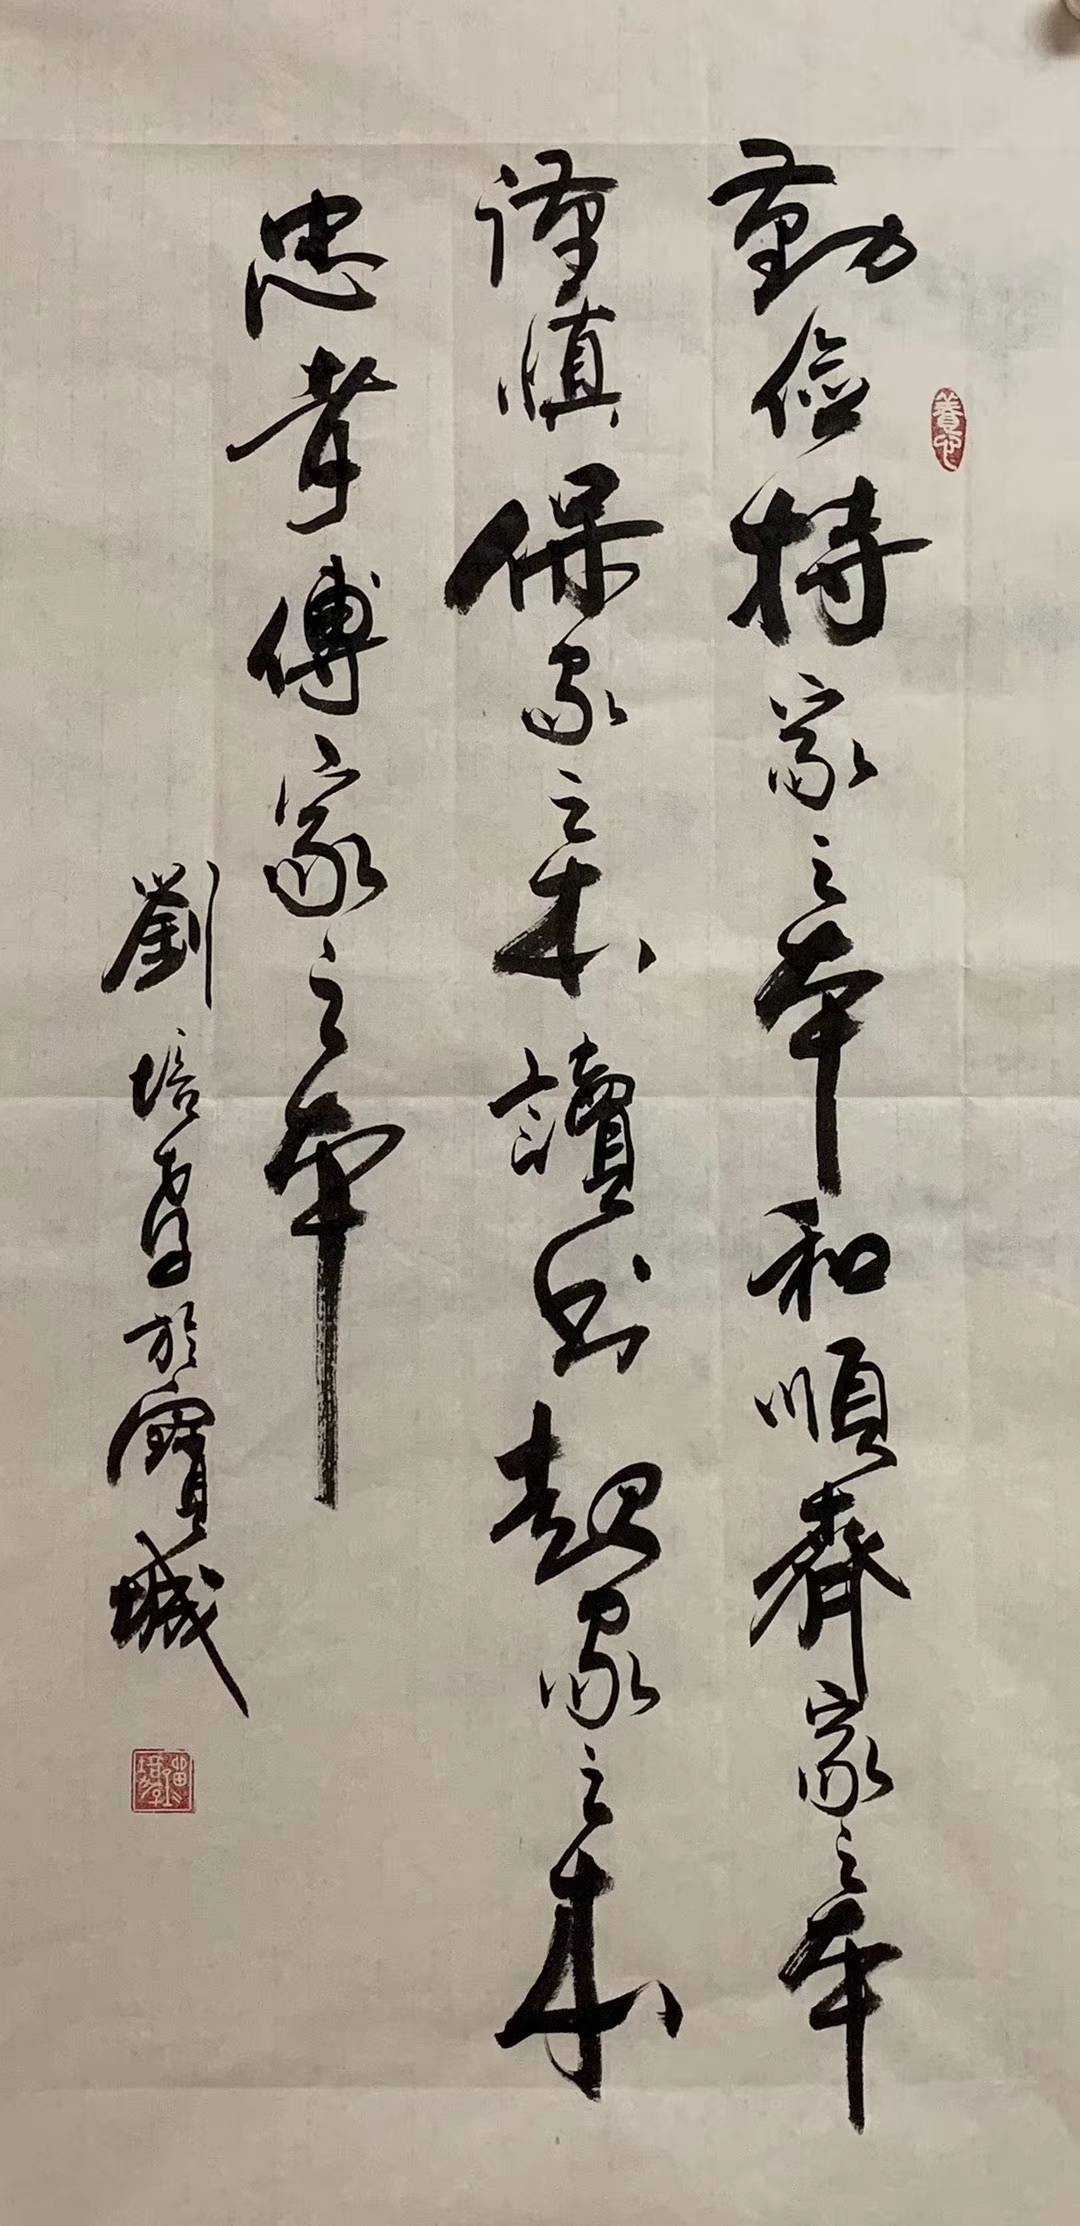 勤儉持家之本和順齊家之本
謹慎保家之本讀书起家之本
忠孝傳家之本
劉培孝於寶城
養心